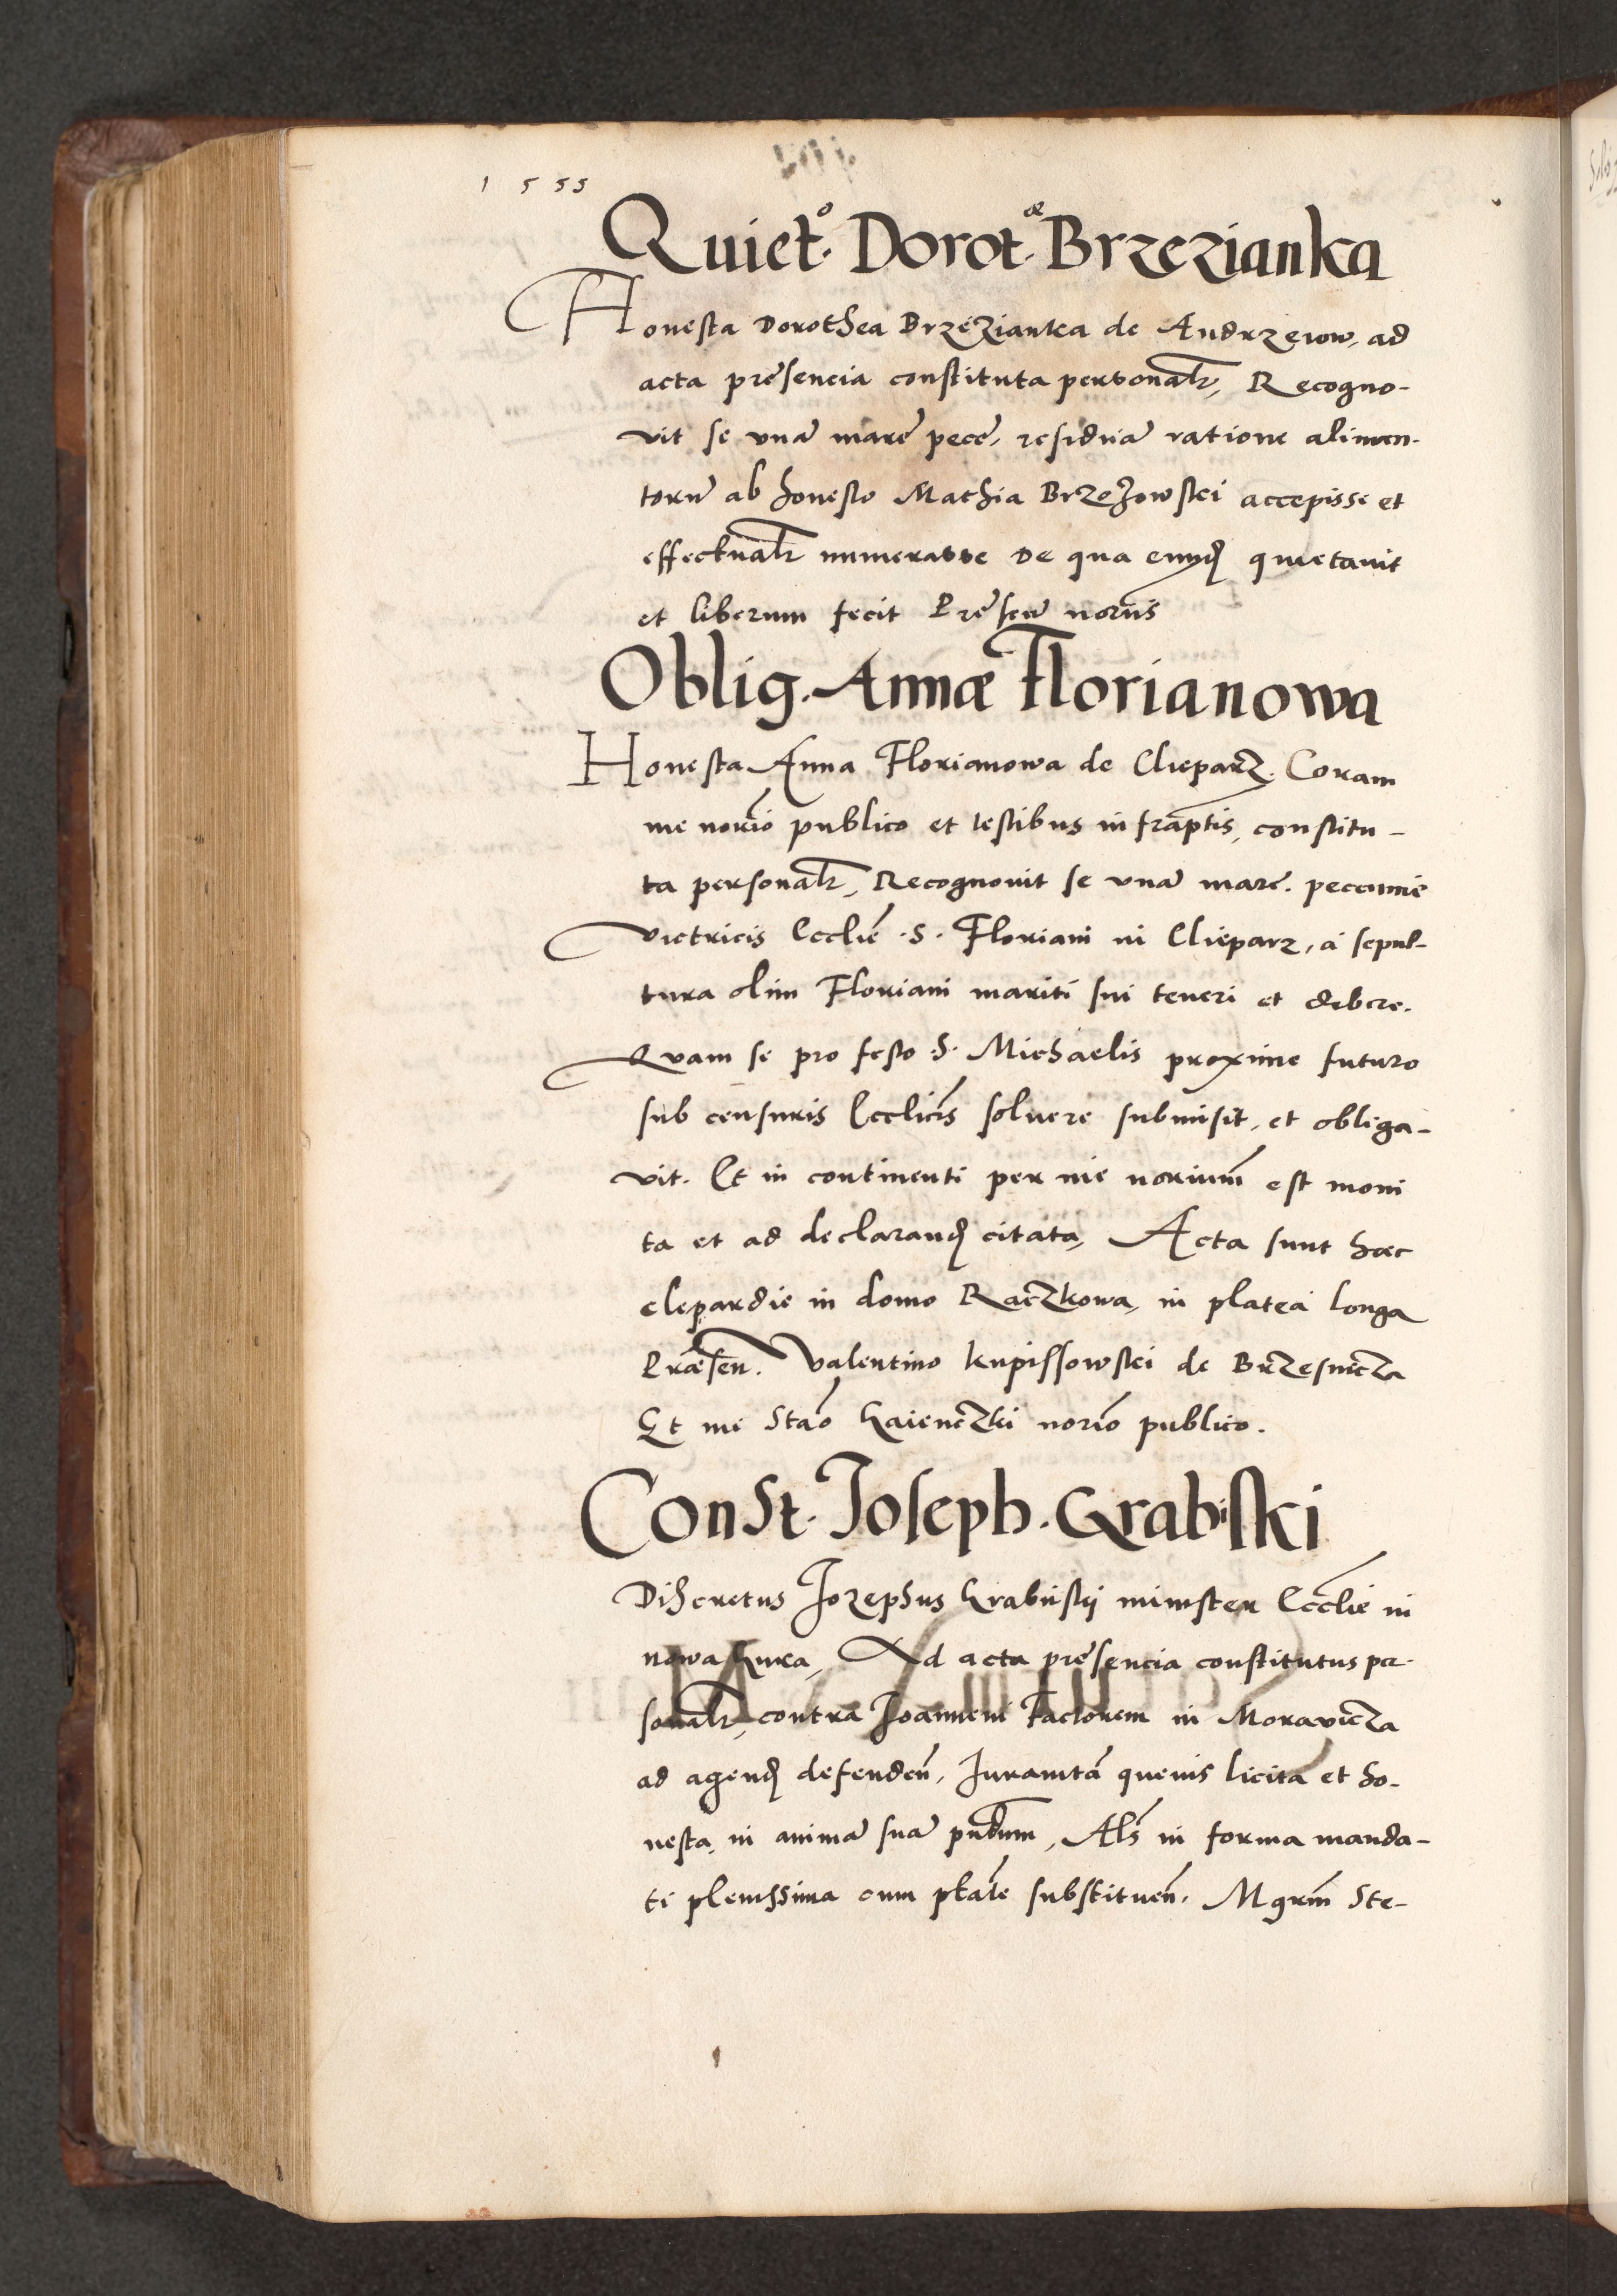 1 5 5 5
Quiet.º Dorot.æ Brzezianka
Honesta Dorothea Brzezianka de Andrzeiow, ad
acta presencia constituta personalr, Recogno-
vit se vnā marē pece, residuā ratione alimen-
torū ab honesto Mathia Brzozowski accepisse et
effectualr numerasse De qua eund quietauit
et liberum fecit Presen noriis
Oblig. Annæ Florianowa
Honesta Anna Florianowa de Clieparz. Coram
me norio publico et testibus infraptis, constitu-
ta personalr, Recognouit se vnā marc. peccunie
victricis Ecclie .S. Floriani in Clieparz, á sepul-
tura olim Floriani mariti sui teneri et debere.
Quam se pro festo .S. Michaelis proxime futuro
sub censuris Ecclicis soluere submisit, et obliga-
vit. Et in continenti per me norium est moni
ta et ad declarand citata, Acta sunt hæc
clepardie in domo Raczkowa, in platea longa
Præsen. Valentino Kupissowski de Brzesnicza
Et me Stao Gaienczki norio publico.
Const. Joseph. Grabski
Discretus Jozephus Grabiisky minister Ecclie in
nowa Gura, Ad acta presencia constitutus per-
sonalr, contra Joannem Factorem in Moravicza
ad agend defenden, Juramtā quevis licita et ho-
nesta, in animā suā pndum, Als in forma manda-
ti plenissima cum ptate substituen. Mgrm Ste-